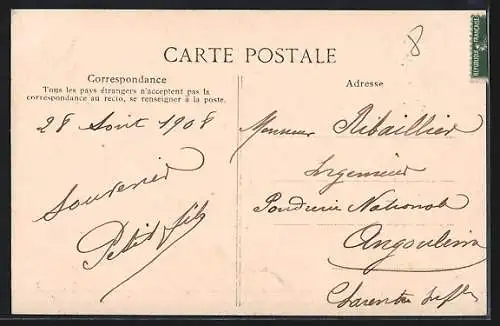 8
RÉPUBLIQUE FRANÇAISE
CARTE POSTALE
Correspondance
Tous les pays étrangers n'acceptent pas la
correspondance au recto, se renseigner à la poste.
Adresse
28 Août 1908
Souvenir
Petit fils
Monsieur Ribaillier
Ingénieur
Poudrerie Nationale
Angoulême
Charente